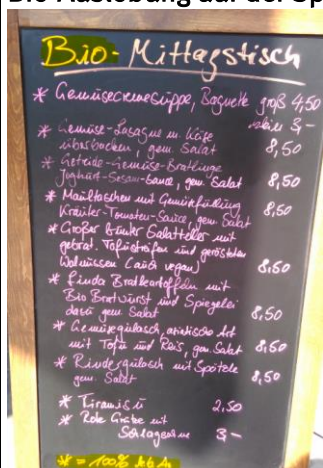 Bio-Mittagstisch
* Gemüsecremesuppe, Baguette groß 4,50
klein 3,-
* Gemüse-Lasagne m. Käse
überbacken, gem. Salat 8,50
* Getreide-Gemüse-Bratlinge
Joghurt-Sesam-Sauce, gem. Salat 8,50
* Maultaschen mit Gemüsefüllung
Kräuter-Tomaten-Sauce, gem. Salat 8,50
* Großer bunter Salatteller mit
gebrat. Tofustreifen und gerösteten
Walnüssen (auch vegan) 8,50
* Linda Bratkartoffeln mit
Bio Bratwurst und Spiegelei
dazu gem Salat 8,50
* Gemüsegulasch, asiatische Art
mit Tofu und Reis, gem. Salat 8,50
* Rindergulasch mit Spätzle
gem. Salat 8,50
* Tiramisu 2,50
* Rote Grütze mit
Schlagsahne 3,-
* = 100% kbA